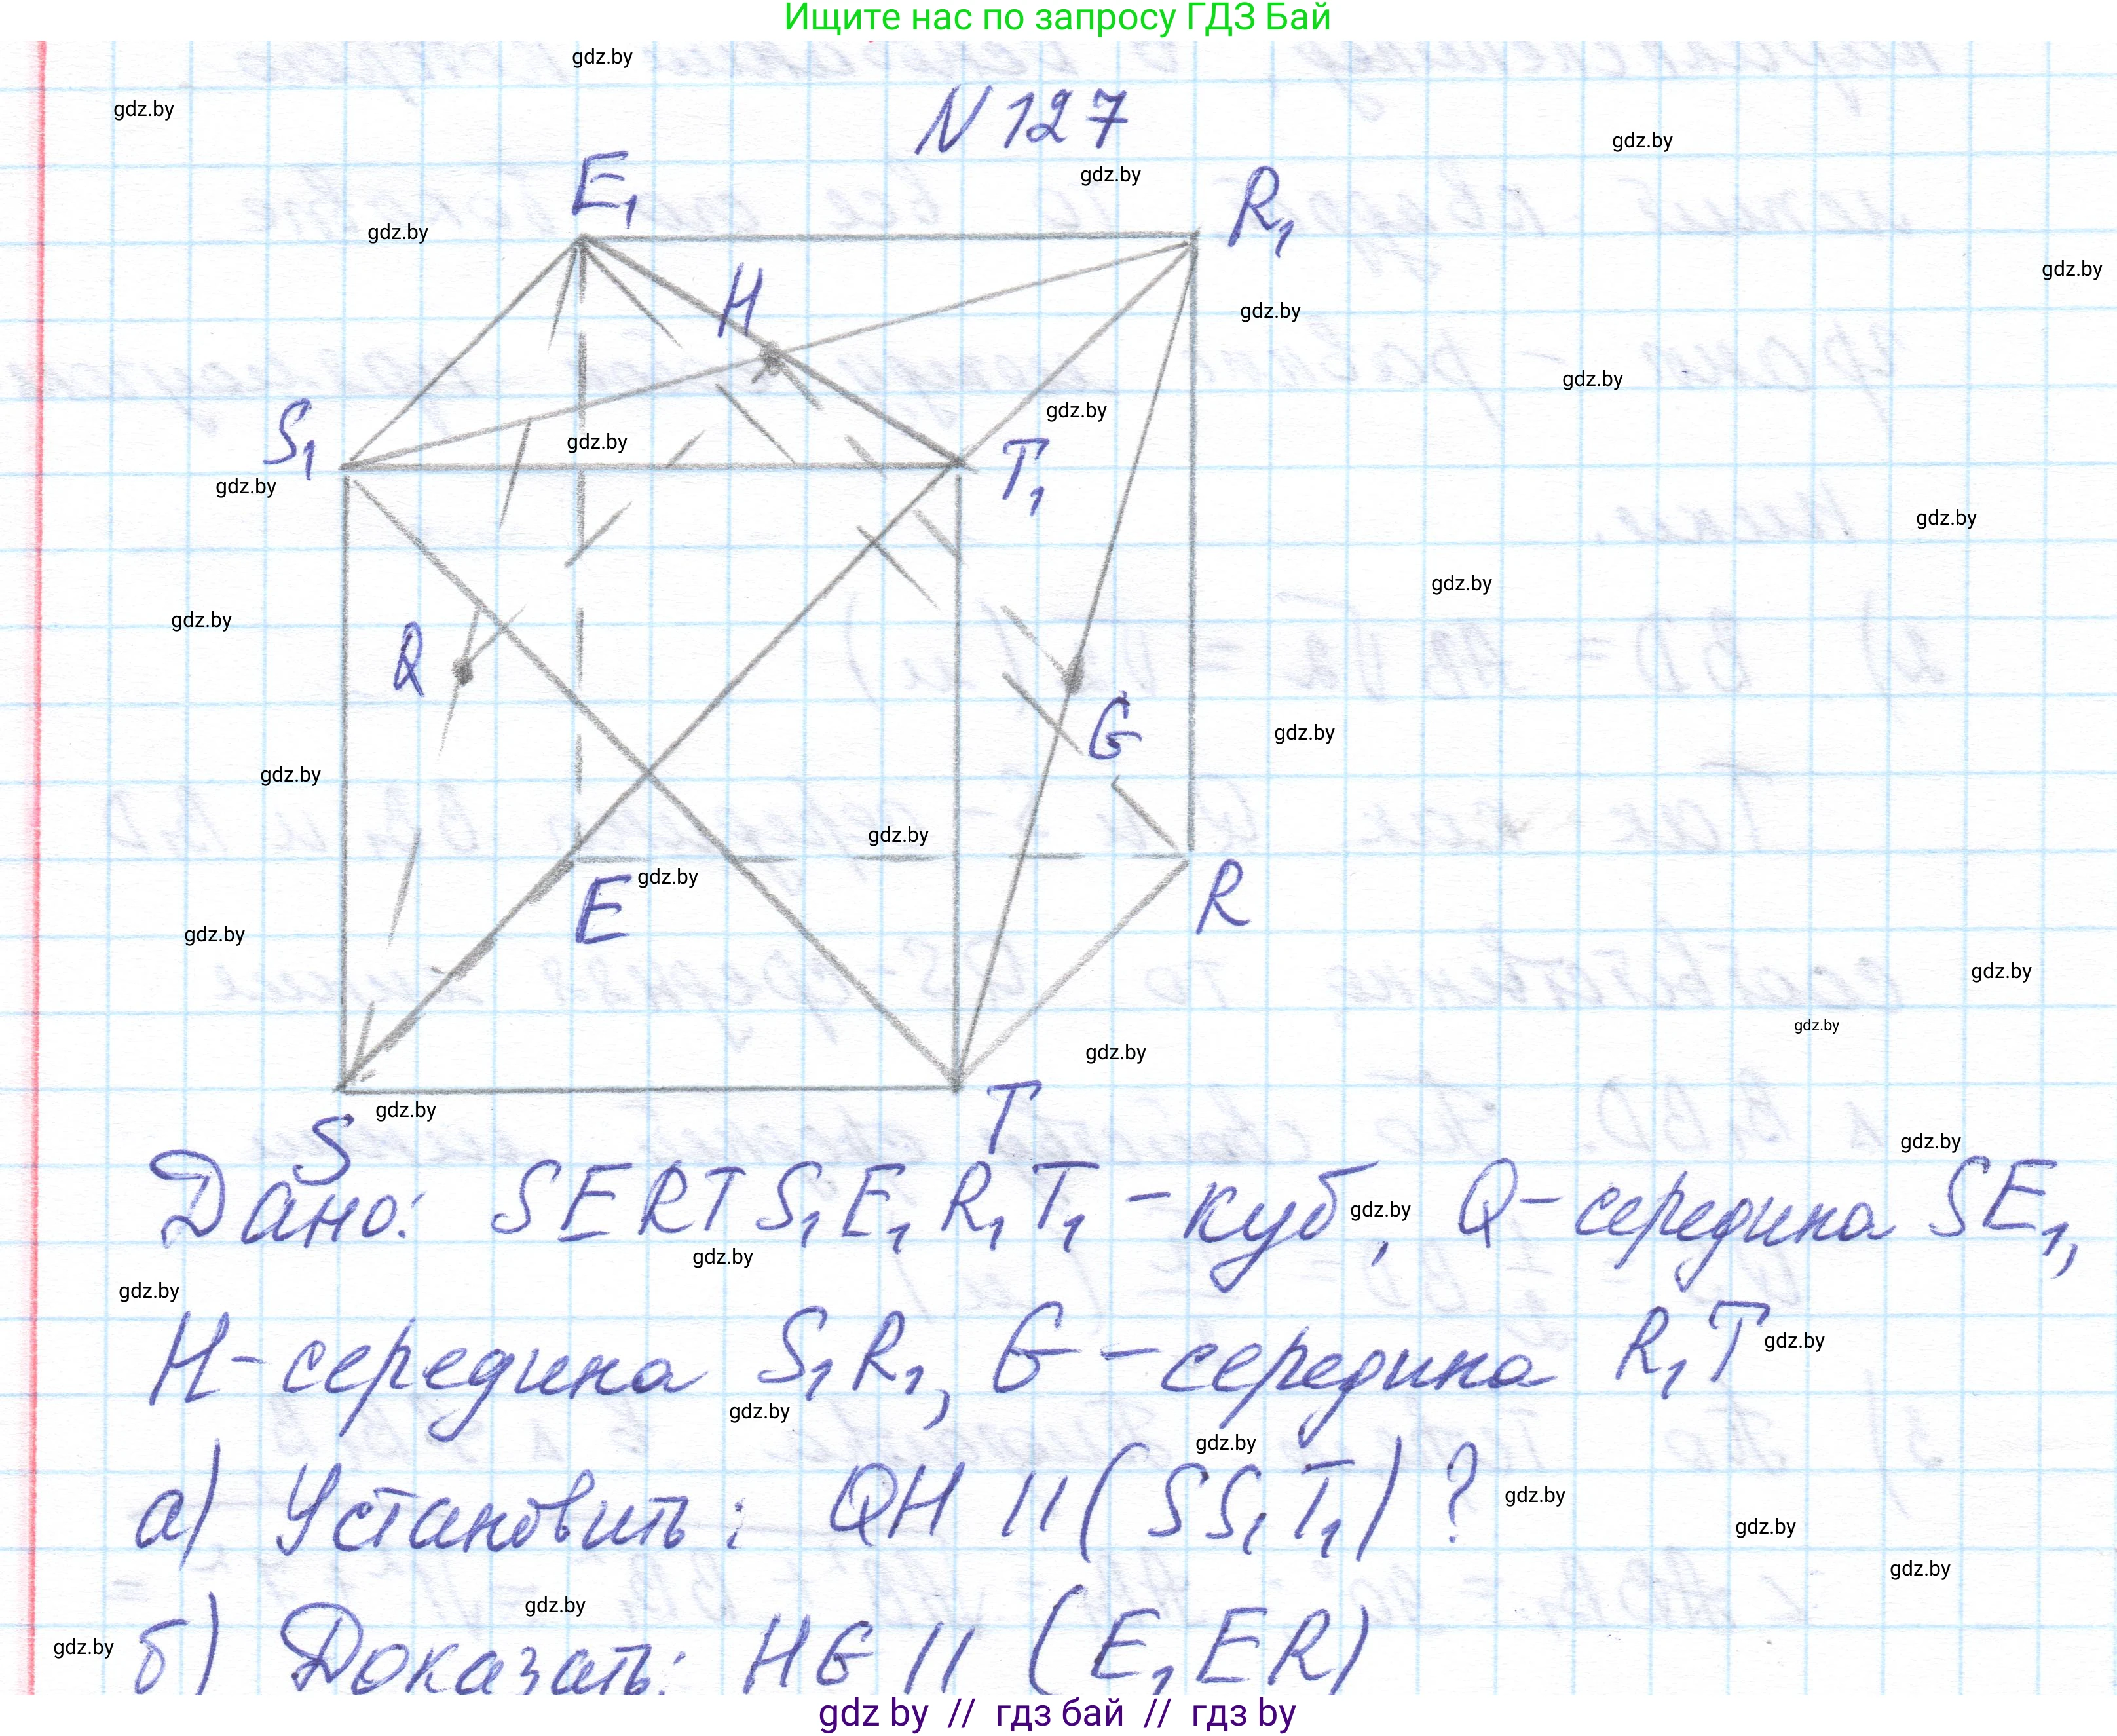 Ищите нас по запросу ГДЗ Бай
gdz.by
N 127
gdz.by
gdz.by
gdz.by
E₁
R₁
gdz.by
gdz.by
H
gdz.by
gdz.by
gdz.by
S₁
gdz.by
T₁
gdz.by
gdz.by
gdz.by
gdz.by
Q
G
gdz.by
gdz.by
gdz.by
E
gdz.by
R
gdz.by
gdz.by
gdz.by
gdz.by
gdz.by
S
T
gdz.by
Дано: SERTS₁E₁R₁T₁ - куб, gdz.by Q - середина SE₁,
gdz.by
gdz.by
H - середина S₁R₁, G - середина R₁T gdz.by
gdz.by
gdz.by
а) Установить: QH || (SS₁T₁) ? gdz.by
gdz.by
gdz.by
gdz.by
gdz.by
б) Доказать: HG || (E₁ER)
gdz by // гдз бай // гдз by